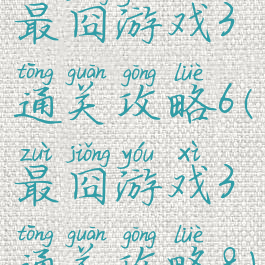 最囧游戏3
tōng guān gōng lüè
通关攻略6(
zuì jiǒng yóu xì
最囧游戏3
tōng guān gōng lüè
通关攻略8)